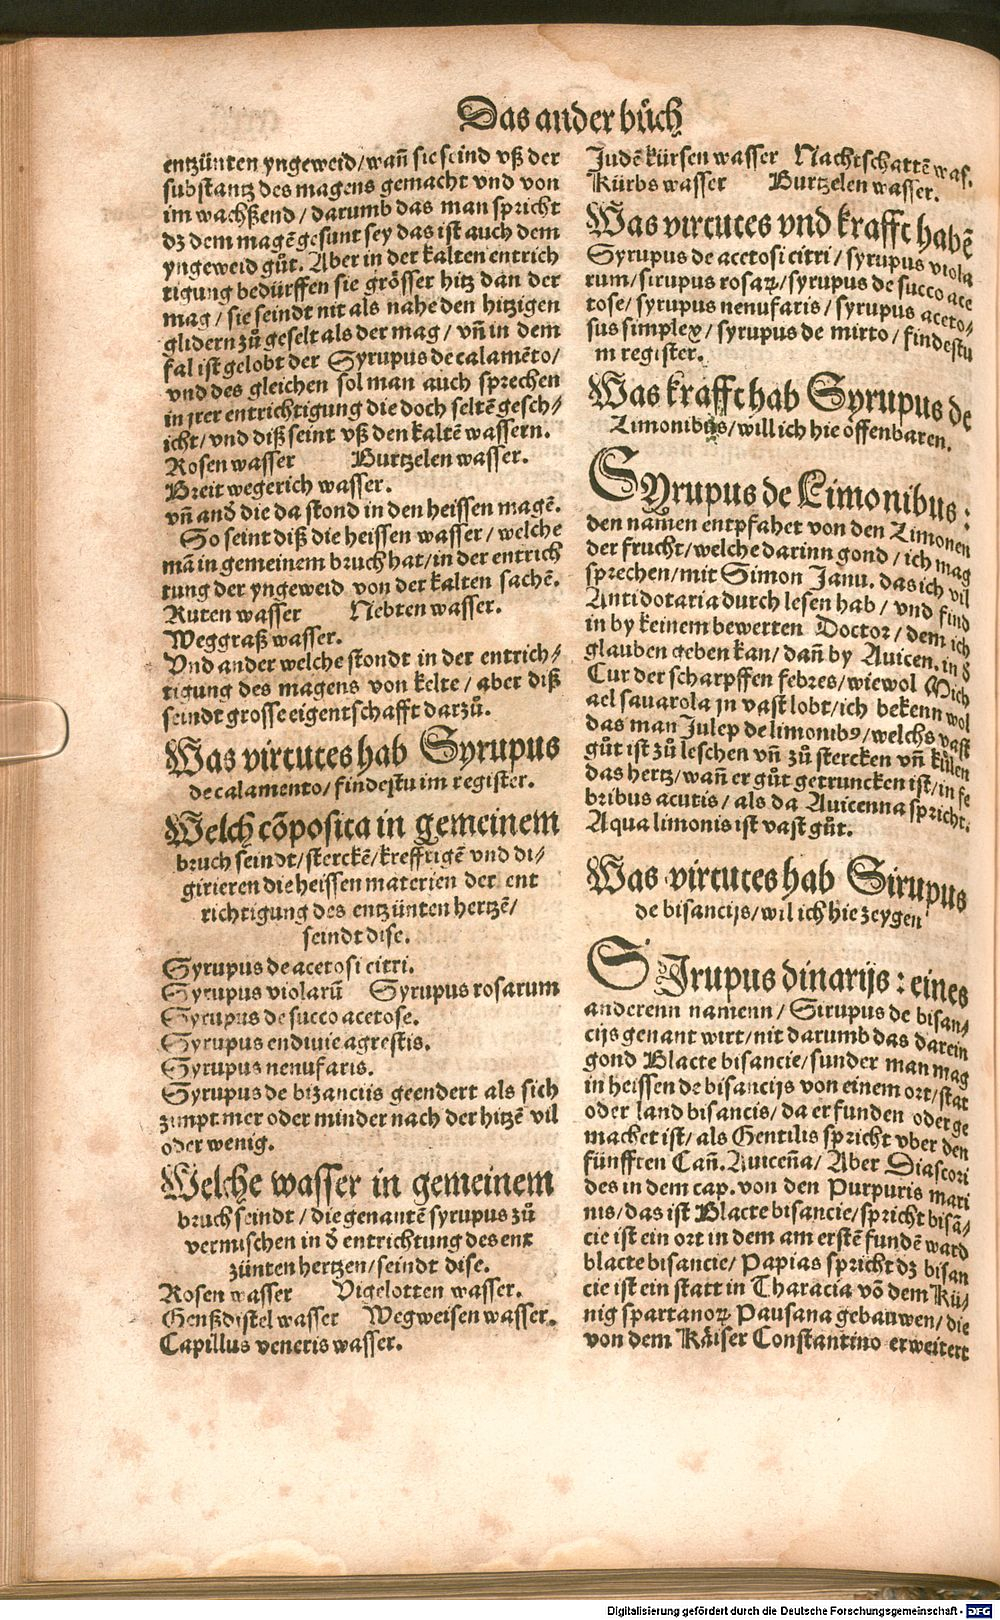 Das ander bůch
entzünten yngeweid/wañ sie seind vß der
substantz des magens gemacht vnd von
im wachßend/darumb das man spricht
dz dem magē gesunt sey das ist auch dem
yngeweid gůt. Aber in der kalten entrich
tigung bedürffen sie grösser hitz dan der
mag/sie seindt nit als nahe den hitzigen
glidern zů geselt als der mag/vñ in dem
fal ist gelobt der Syrupus de calamēto/
vnd des gleichen sol man auch sprechen
in irer entrichtigung die doch seltē gesch-
icht/vnd diß seint vß den kaltē wassern.
Rosen wasser Burtzelen wasser.
Breit wegerich wasser.
vñ and die da stond in den heissen magē.
So seint diß die heissen wasser/welche
mā in gemeinem bruch hat/in der entrich
tung der yngeweid von der kalten sachē.
Ruten wasser Nebten wasser.
Weggraß wasser.
Vnd ander welche stondt in der entrich-
tigung des magens von kelte/aber diß
seindt grosse eigentschafft darzů.
Was virtutes hab Syrupus
de calamento/findestu im register.
Welch cōposita in gemeinem
bruch seindt/sterckē/krefftigē vnd di-
girieren die heissen materien der ent
richtigung des entzünten hertzē/
seindt dise.
Syrupus de acetosi citri.
Syrupus violarū Syrupus rosarum
Syrupus de succo acetose.
Syrupus endiuie agrestis.
Syrupus nenufaris.
Syrupus de bizanciis geendert als sich
zimpt mer oder minder nach der hitzē vil
oder wenig.
Welche wasser in gemeinem
bruch seindt/die genantē syrupus zů
vermischen in đ entrichtung des ent
zünten hertzen/seindt dise.
Rosen wasser Vigelotten wasser.
Genßdistel wasser Wegweisen wasser.
Capillus veneris wasser.
Judē kürsen wasser Nachtschattē was.
Kürbs wasser Burtzelen wasser.
Was virtutes vnd krafft habē
Syrupus de acetosi citri/syrupus viola
rum/sirupus rosaꝝ/syrupus de succo ace
tose/syrupus nenufaris/syrupus aceto-
sus simplex/syrupus de mirto/findestu
m register.
Was krafft hab Syrupus de
Limonibus/will ich hie offenbaren.
SYrupus de Limonibus:
den namen entpfahet von den Limonen
der frucht/welche darinn gond/ich mag
sprechen/mit Simon Janu. das ich vil
Antidotaria durch lesen hab/vnd find
in by keinem bewerten Doctor/dem ich
glauben geben kan/dañ by Auicen. in đ
Cur der scharpffen febres/wiewol Mich
ael sauarola jn vast lobt/ich bekenn wol
das man Julep de limonibꝰ/welchs vast
gůt ist zů leschen vñ zů stercken vñ külen
das hertz/wañ er gůt getruncken ist/in fe
bribus acutis/als da Auicenna spricht.
Aqua limonis ist vast gůt.
Was virtutes hab Sirupus
de bisancijs/wil ich hie zeygen
SIrupus dinarijs: eines
anderenn namenn/Sirupus de bisan-
cijs genant wirt/nit darumb das darein
gond Blacte bisancie/sunder man mag
in heissen de bisancijs von einem ort/stat
oder land bisancis/da er funden oder ge
machet ist/als Gentilis spricht vber den
fünfften Cañ. Auiceña/Aber Diascori
des in dem cap. von den Purpuris mari
nis/das ist Blacte bisancie/spricht bisā-
cie ist ein ort in dem am erstē fundē ward
blacte bisancie/Papias spricht dz bisan
cie ist ein statt in Tharacia vō dem Kü-
nig spartanoꝝ Pausana gebauwen/die
von dem Käiser Constantino erweitert
Digitalisierung gefördert durch die Deutsche Forschungsgemeinschaft - DFG